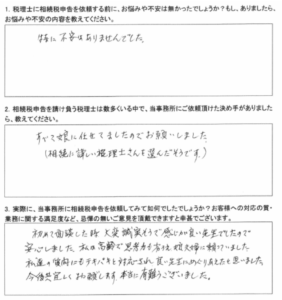 1. 税理士に相続税申告を依頼する前に、お悩みや不安は無かったでしょうか？もし、ありましたら、
お悩みや不安の内容を教えてください。
特に不安はありませんでした。
2. 相続税申告を請け負う税理士は数多くいる中で、当事務所にご依頼頂けた決め手がありました
ら、教えてください。
すべて娘に任せてましたのでお願いしました
(相続に詳しい税理士さんを選んだそうです。)
3. 実際に、当事務所に相続税申告を依頼してみて如何でしたでしょうか？お客様への対応の質・
業務に関する満足度など、忌憚の無いご意見を頂戴できますと幸甚でございます。
初めて面接した時 大変誠実そうで感じが良い先生でしたので
安心しました。私は高齢で
と思いました。
本当に有難うございました。